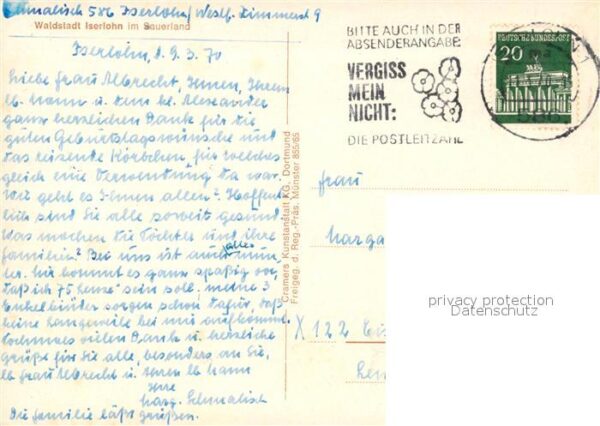 Schmalisch 586 Iserlohn/Westf. Zimmerstr 9
Waldstadt Iserlohn im Sauerland
Iserlohn, d. 9. 3. 70
Liebe Frau Albrecht, Ihnen, Ihrem
lb. Mann u. dem kl. Alexander
ganz herzlichen Dank für die
guten Geburtstagswünsche und
das reizende Körbchen, für welches
gleich eine Verwendung da war.
Wie geht es Ihnen allen? Hoffent
lich sind Sie alle soweit gesund
Was machen die Töchter und ihre
Familien? Bei uns ist auch alles mun
ter. Mir kommt es ganz spaßig vor,
daß ich 75 Lenze sein soll. Meine 3
Enkelkinder sorgen schon dafür, daß
keine Langeweile bei mir aufkommt.
Nochmals vielen Dank u. herzliche
grüße für Sie alle, besonders an Sie,
lb Frau Albrecht u. Ihren lb Mann
Ihre
Marg. Schmalisch
Die Familie läßt grüßen.
Cramers Kunstanstalt KG. Dortmund
Freigeg. d. Reg.-Präs. Münster 855/65
BITTE AUCH IN DER
ABSENDERANGABE
VERGISS
MEIN
NICHT:
DIE POSTLEITZAHL
20
DEUTSCHE BUNDESPOST
586
Frau
Marga
X 122
privacy protection
Datenschutz